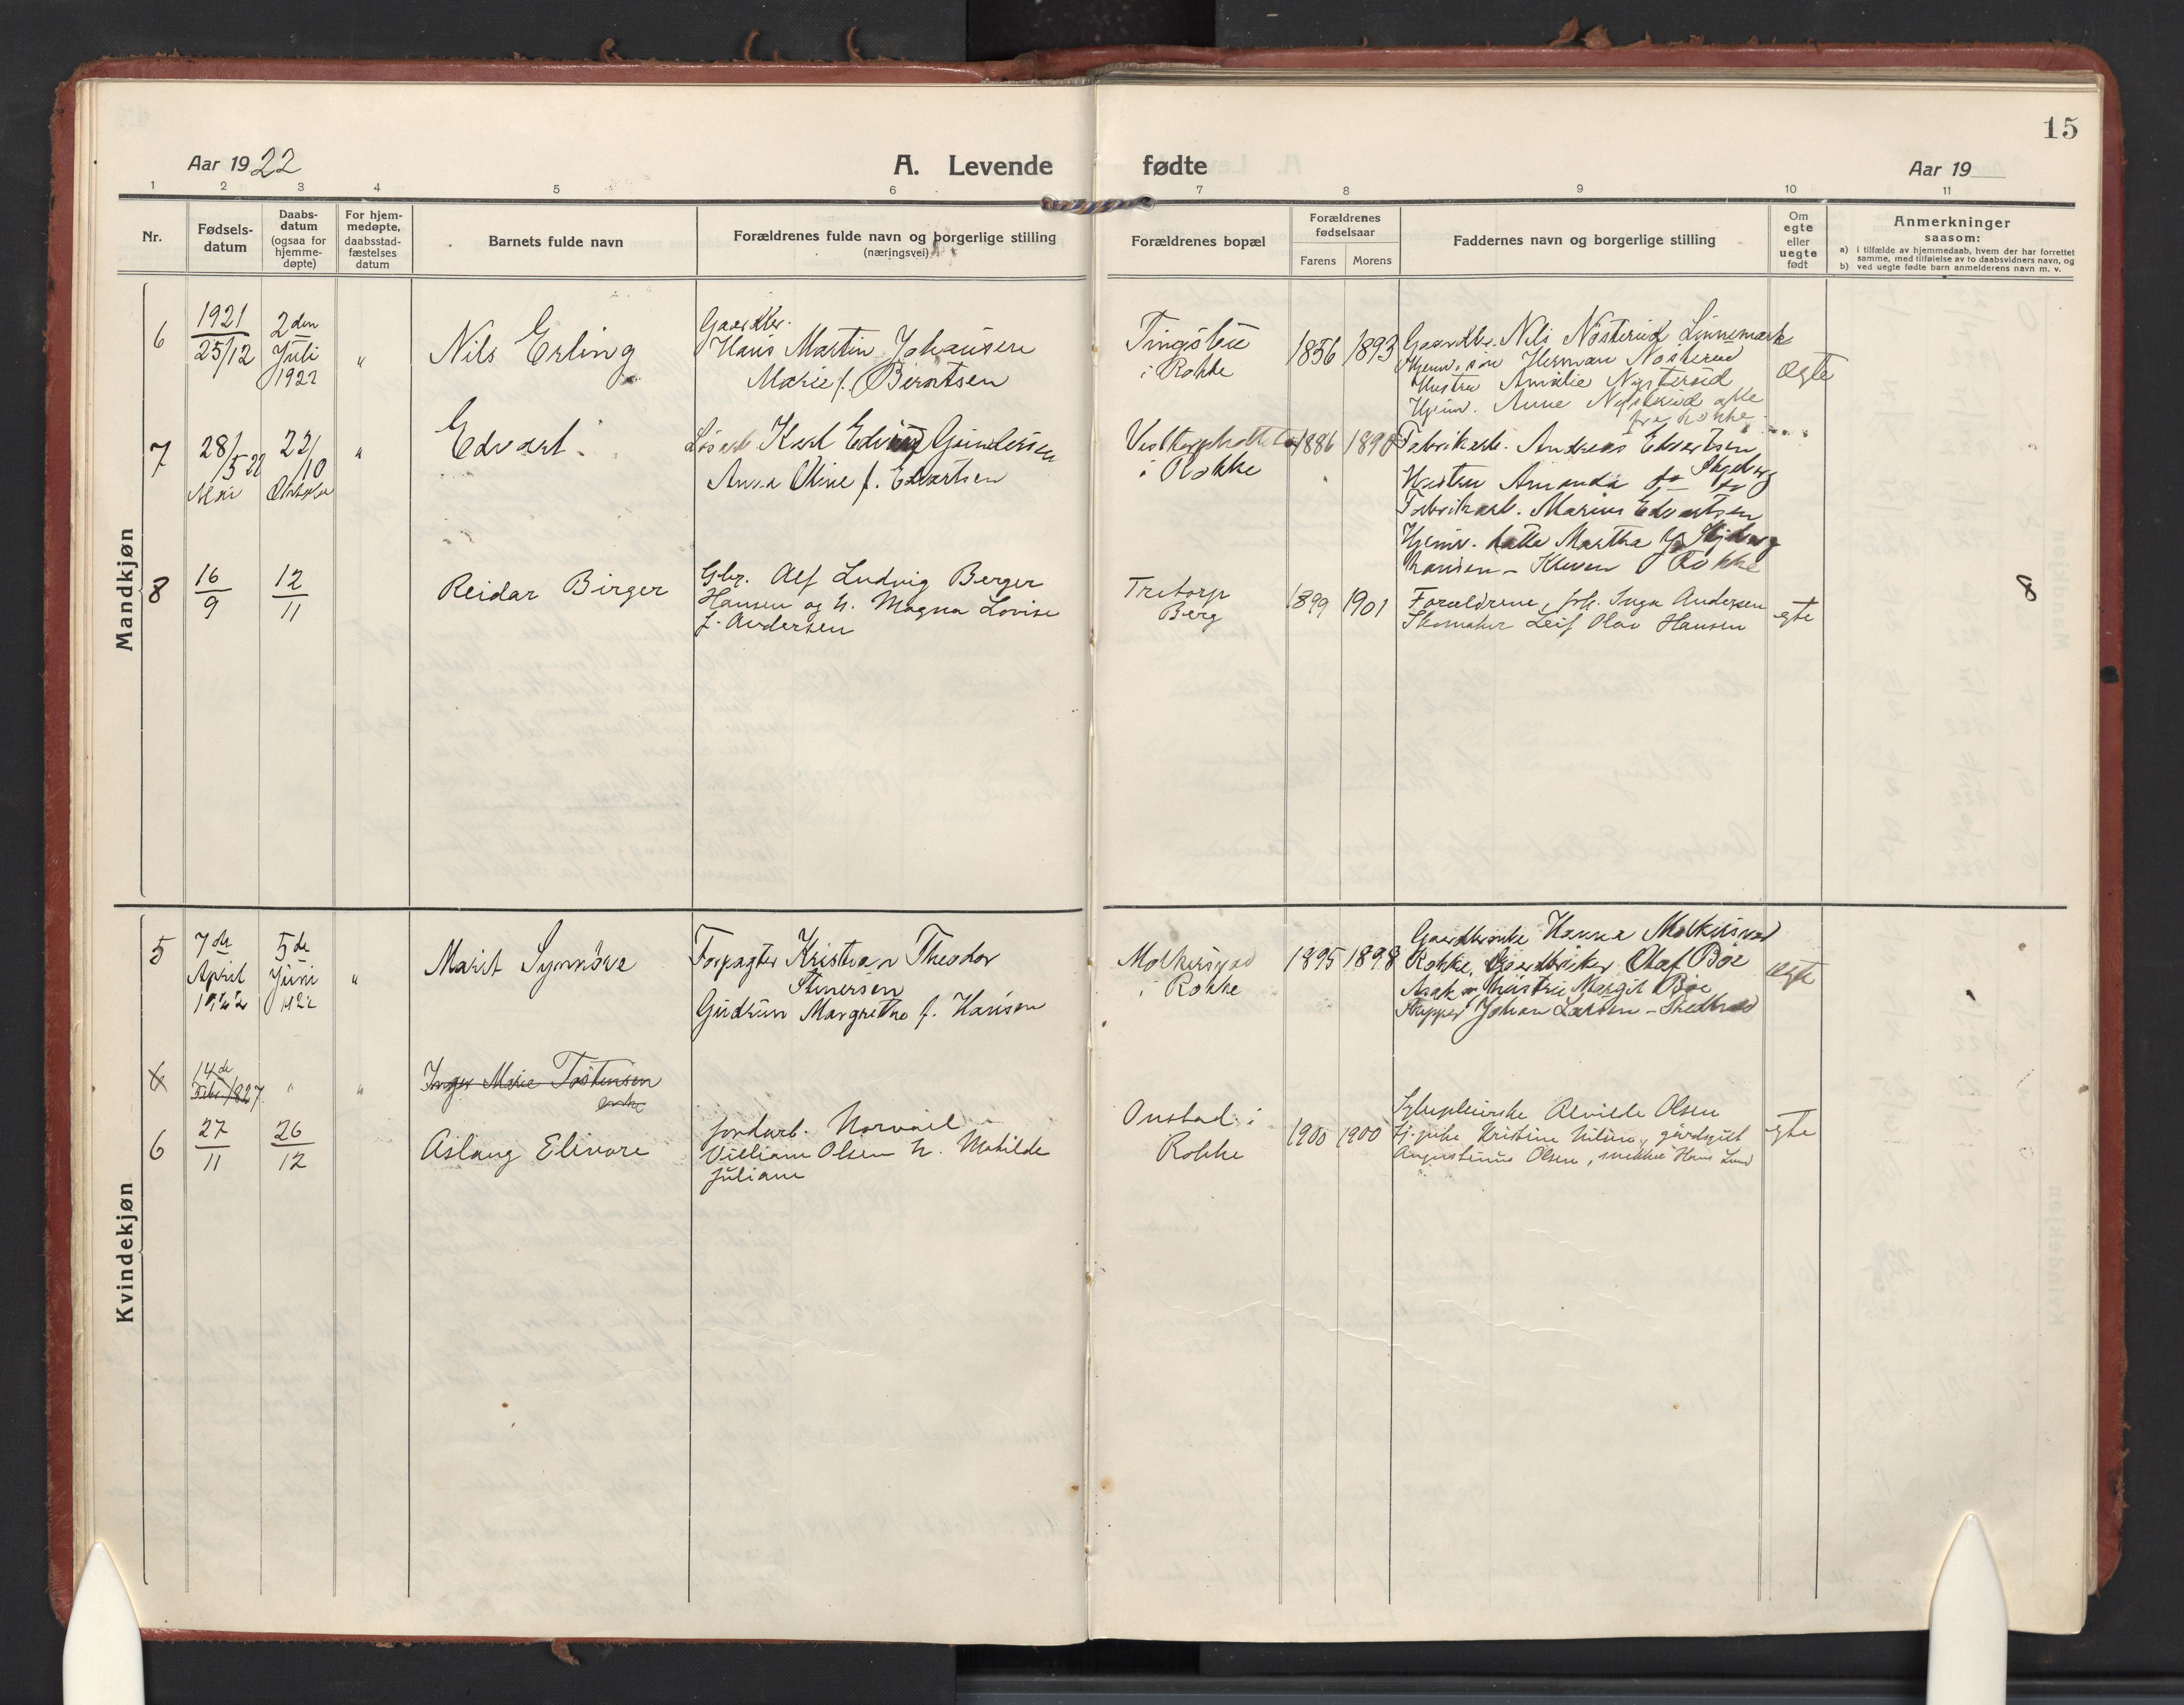 15
Aar 1922
A. Levende fødte
Aar 19
1 2 3 4 5 6 7 8 9 10 11
Nr.
Fødsels-
datum
Daabs-
datum
(ogsaa for
hjemme-
døpte)
For hjem-
medøpte,
daabsstad-
fæstelses
datum
Barnets fulde navn
Forældrenes fulde navn og borgerlige stilling
(næringsvei)
Forældrenes bopæl
Forældrenes
fødselsaar
Farens Morens
Faddernes navn og borgerlige stilling
Om
egte
eller
uegte
født
Anmerkninger
saasom:
a) i tilfælde av hjemmedaab, hvem der har forrettet
samme, med tilføielse av to daabsvidners navn, og
b) ved uegte fødte barn anmelderens navn m. v.
Mandkjøn
6
1921
25/12
2den
Juli
1922
"
Nils Erling
Gaardbr.
Hans Martin Johansen
Marie f. Berntsen
Tingstue
i Rokke
1856 1893
Gaardbr. Nils Nøsterud Linnemark
Hjemv. søn Herman Nøsterud
Hustru Amalie Nøsterud
Hjemv. Anne Nøsterud alle
fra Rokke
Ægte
7
28/5 22
Mai
22/10
Oktober
"
Edvart.
Karl Edvin Gundersen
Anna Oline f. Edvartsen
i Rokke
1886 1890
Fabrikarb. Andreas Edvartsen
Hustru Amanda do
Fabrikarb. Marius Edvartsen
Hjemv. datter Martha
Rokke
8
16
9
12
11
Reidar Birger
Gbr. Alf Ludvig Berger
Hansen og h. Magna Lovise
f. Andersen
Tretorp
Berg
1899 1901
Forældrene, frk. Inga Andersen
Skomaker Leif Olav Hansen
egte
8
Kvindekjøn
5
7de
April
1922
5de
Juni
1922
"
Marit Synnöve
Forpagter Kristian Theodor
Stenersen
Gudrun Margrethe f. Hansen
i Rokke
1895 1898
Gaardbruke Hanna
Rokke, Gaardbruker Olaf Bøe
Asak, Hustru Margit Bøe
Skipper Johan Larsen
Ægte
6
14de
Febr 1827
"
"
Inger Marie Tostensen
enke
6
27
11
26
12
Aslaug Elinore
Jordarb. Norvail
Villiam Olsen h. Mathilde
Juliane
Onstad i
Rokke
1900 1900
Olsen
Kristine Nilsen, gårdsgut
Augustinus Olsen, snekker Hans Lund
egte